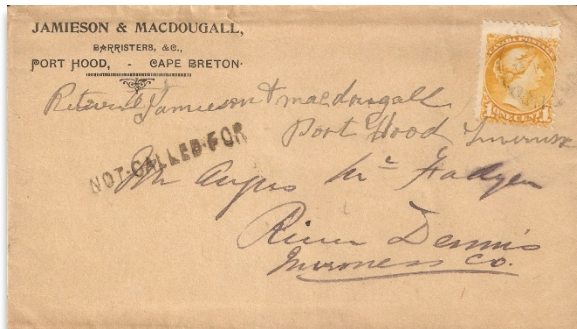 JAMIESON & MACDOUGALL,
BARRISTERS, &C.,
PORT HOOD, - CAPE BRETON.
CANADA POSTAGE
ONE CENT
Return Jamieson & macdougall
Port Hood Inverness
NOT CALLED FOR
Mr Angus Mc Fadyen
River Dennis
Inverness Co.